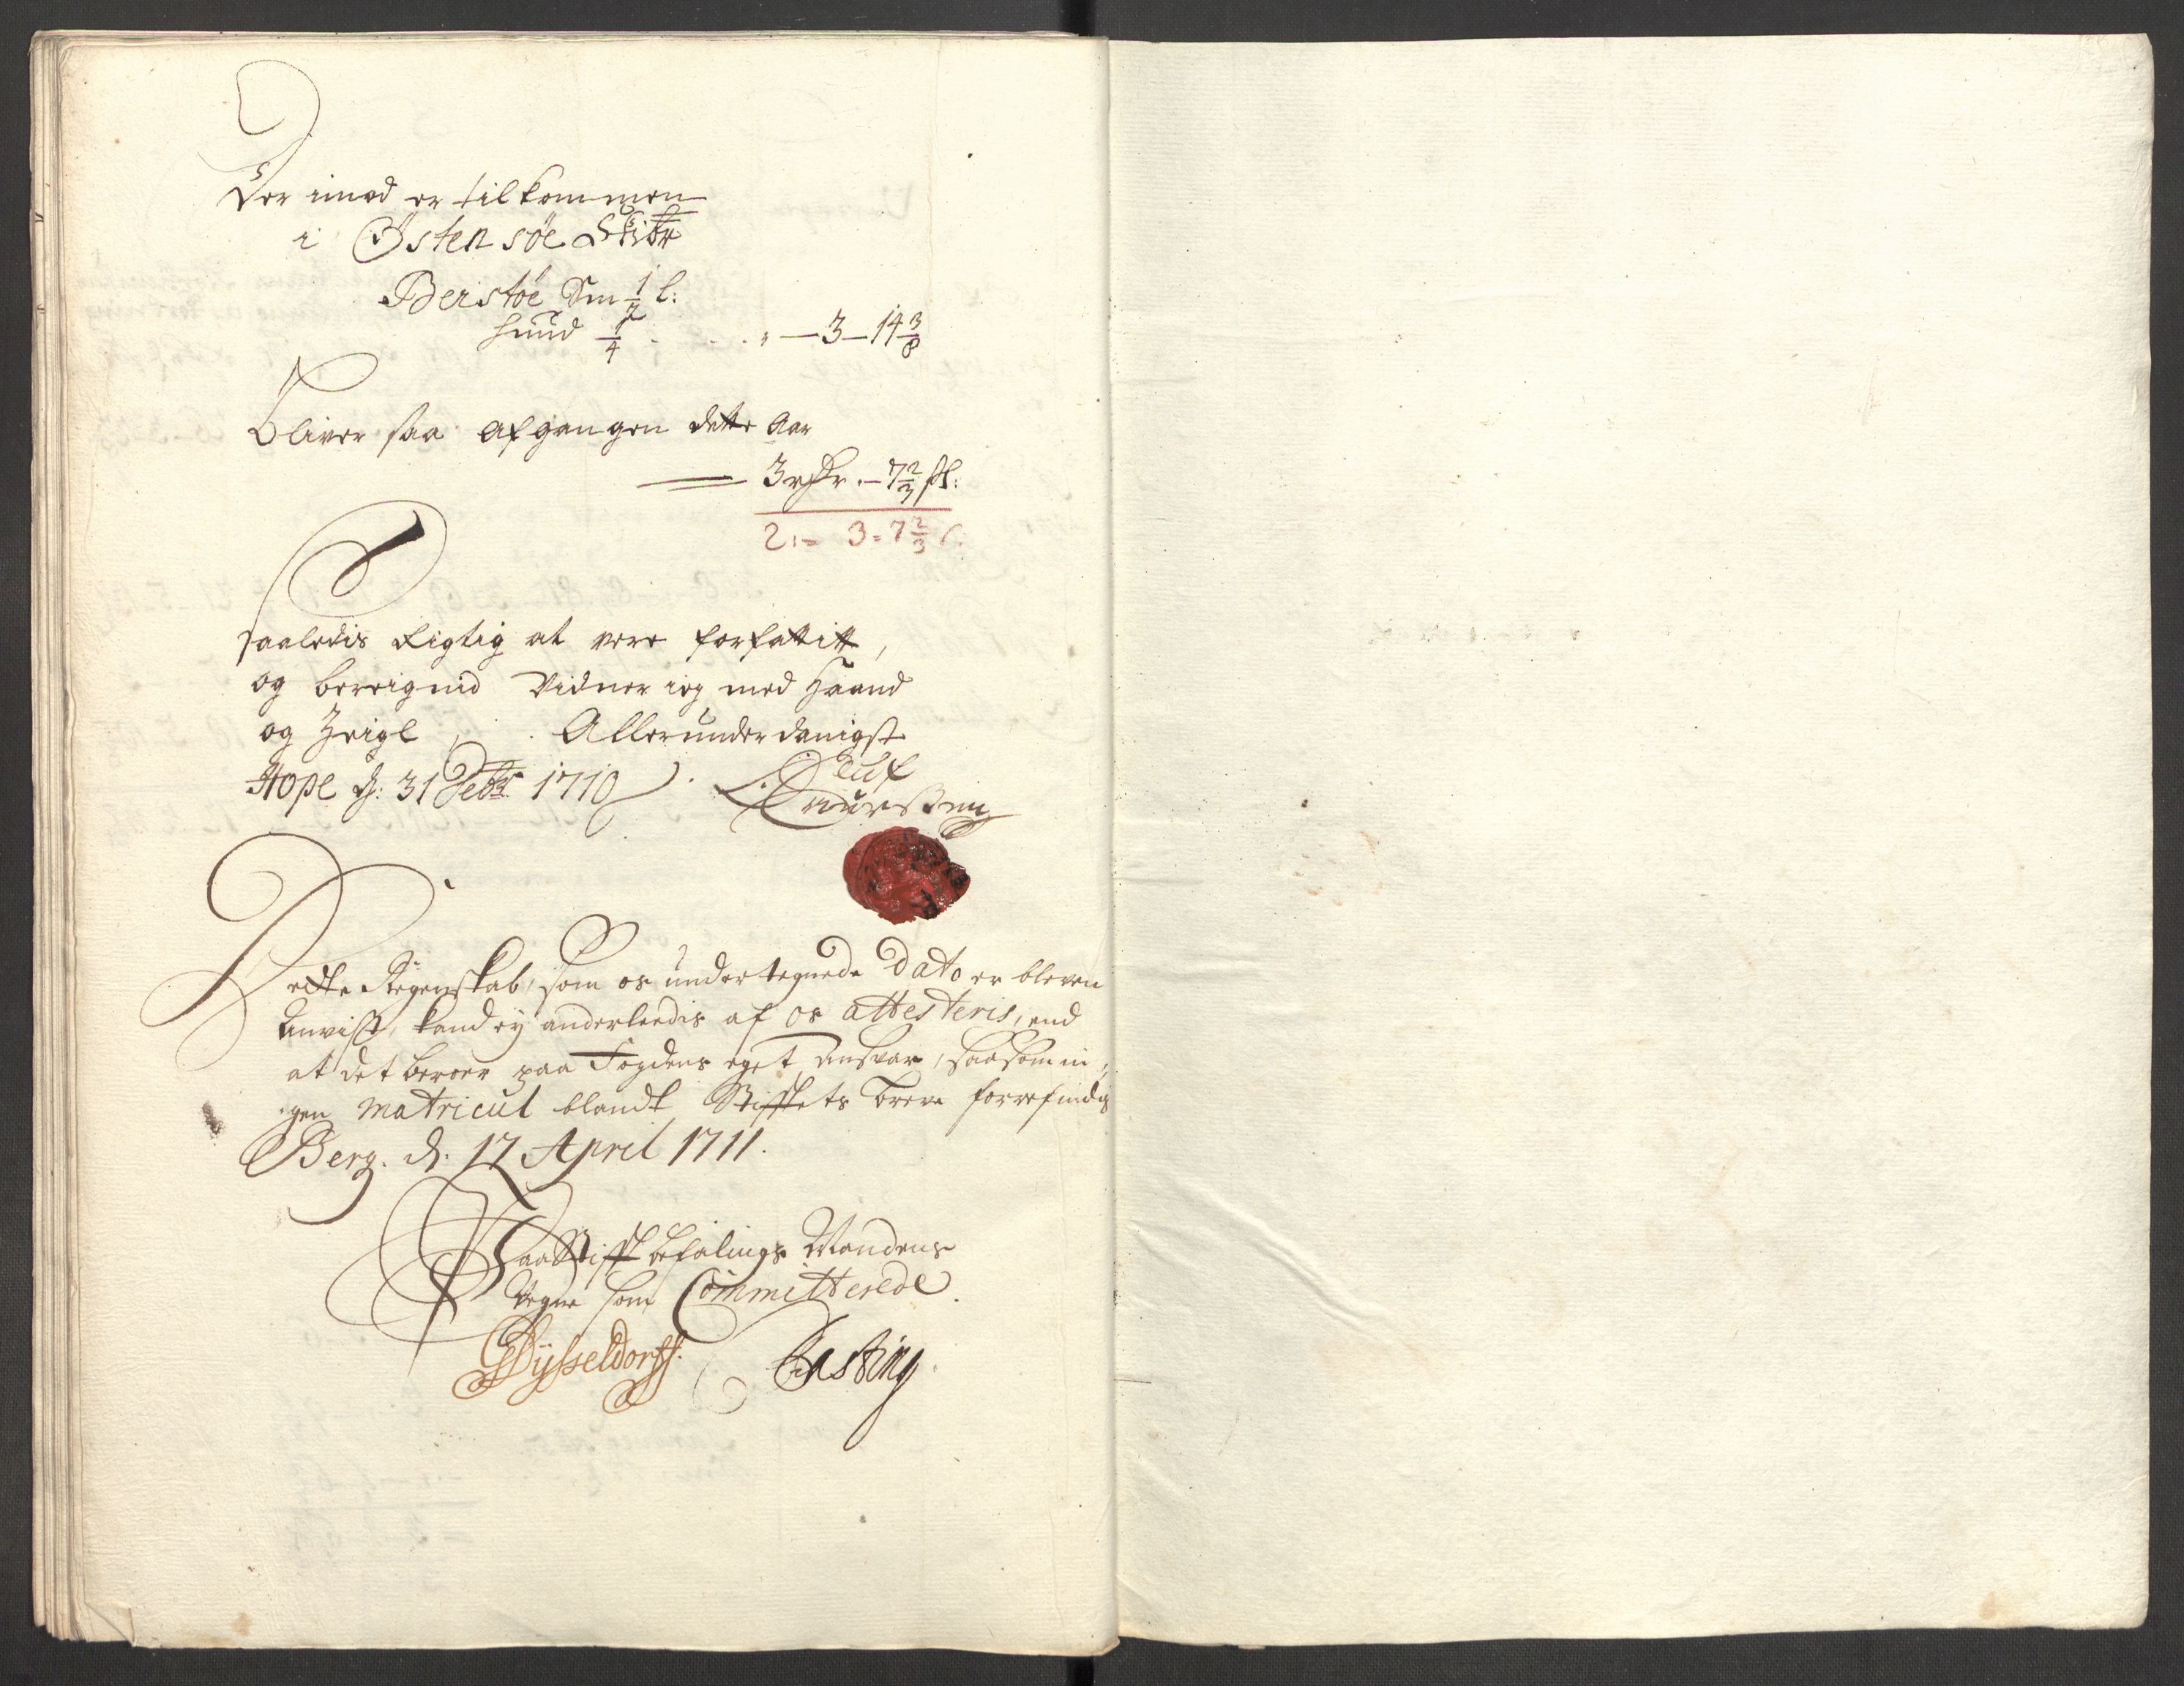 Der imod er tilkommen
i Østensøe Skibr
Berstøe Sm 1/2 l:
huud 1/4 . . . " — 3 — 14 3/8
Bliver saa afgangen dette Aar
3 rdr. — 7 2/3 ß:
2 " = 3 = 7 2/3 ß.
Saaledis Rigtig at vere forfattitt,
og beregnid Vidner ieg med Haand
og Zeigl, Allerunderdanigst
Hope d: 31 Debr 1710
Laurssen
Dette Regenskab, som os undertegnede Dato er bleven
Anvist, kand ey anderleedis af os attesteris, end
at det beroer paa Fogdens eget Ansvar, saasom in,,
gen matricul blandt Stiftets breve forrefindis
Berg. d. 17 April 1711.
Paa Stiftbefalings Mandens
Vegne som Committerede
Dysseldorff. Casting